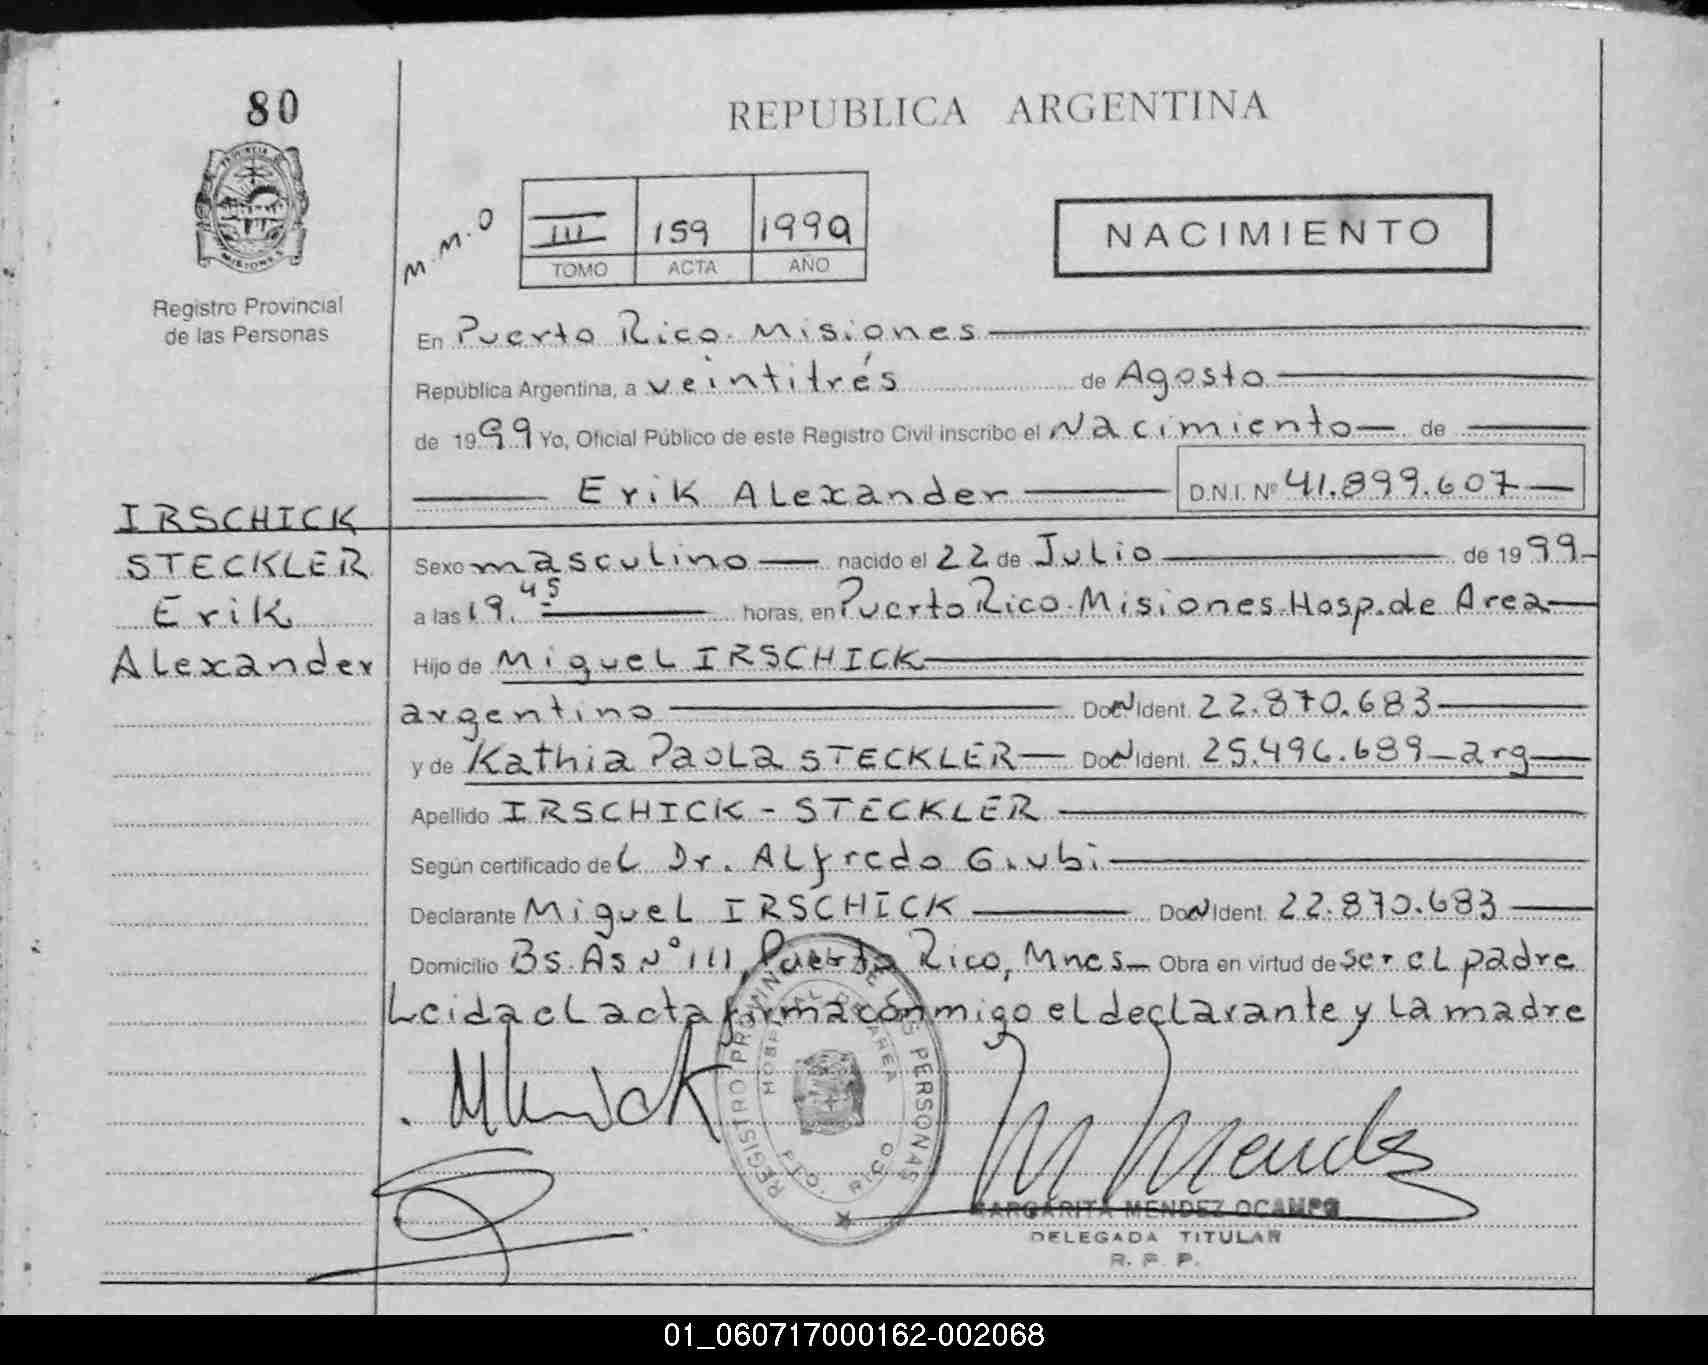 80
REPUBLICA ARGENTINA
PROVINCIA DE
MISIONES
Registro Provincial
de las Personas
M.M.O
III 159 1999
TOMO ACTA AÑO
NACIMIENTO
En Puerto Rico. Misiones
República Argentina, a veintitrés de Agosto
de 1999 Yo, Oficial Público de este Registro Civil inscribo el Nacimiento de
Erik Alexander D.N.I. Nº 41.899.607
IRSCHICK
STECKLER
Erik
Alexander
Sexo masculino nacido el 22 de Julio de 1999
a las 19.45 horas, en Puerto Rico. Misiones. Hosp. de Area
Hijo de Miguel IRSCHICK
argentino DocN Ident. 22.870.683
y de Kathia Paola STECKLER DocN Ident. 25.496.689 arg
Apellido IRSCHICK - STECKLER
Según certificado del Dr. Alfredo Giubi
Declarante Miguel IRSCHICK DocN Ident. 22.870.683
Domicilio Bs. As Nº 111, Puerto Rico, Mnes Obra en virtud de ser el padre
Leida el acta firma conmigo el declarante y la madre
REGISTRO PROVINCIAL DE LAS PERSONAS
HOSPITAL DE AREA
PTO. RICO
M Mendez
MARGARITA MENDEZ OCAMPO
DELEGADA TITULAR
R. P. P.
01_060717000162-002068